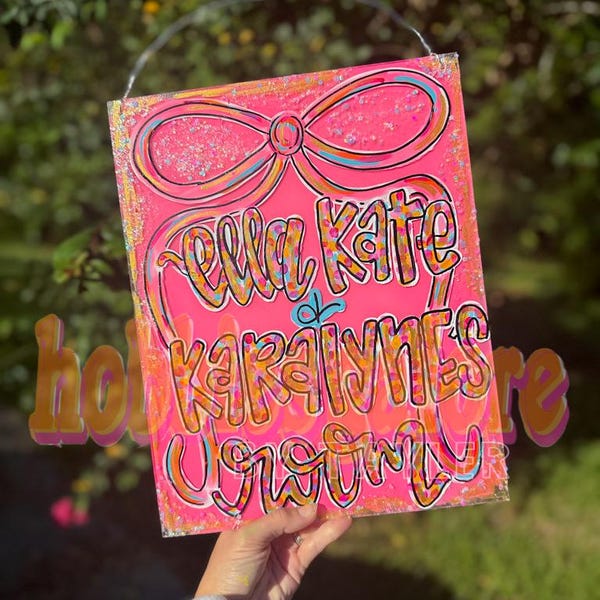 ella Kate
&
KaRalyne's
room